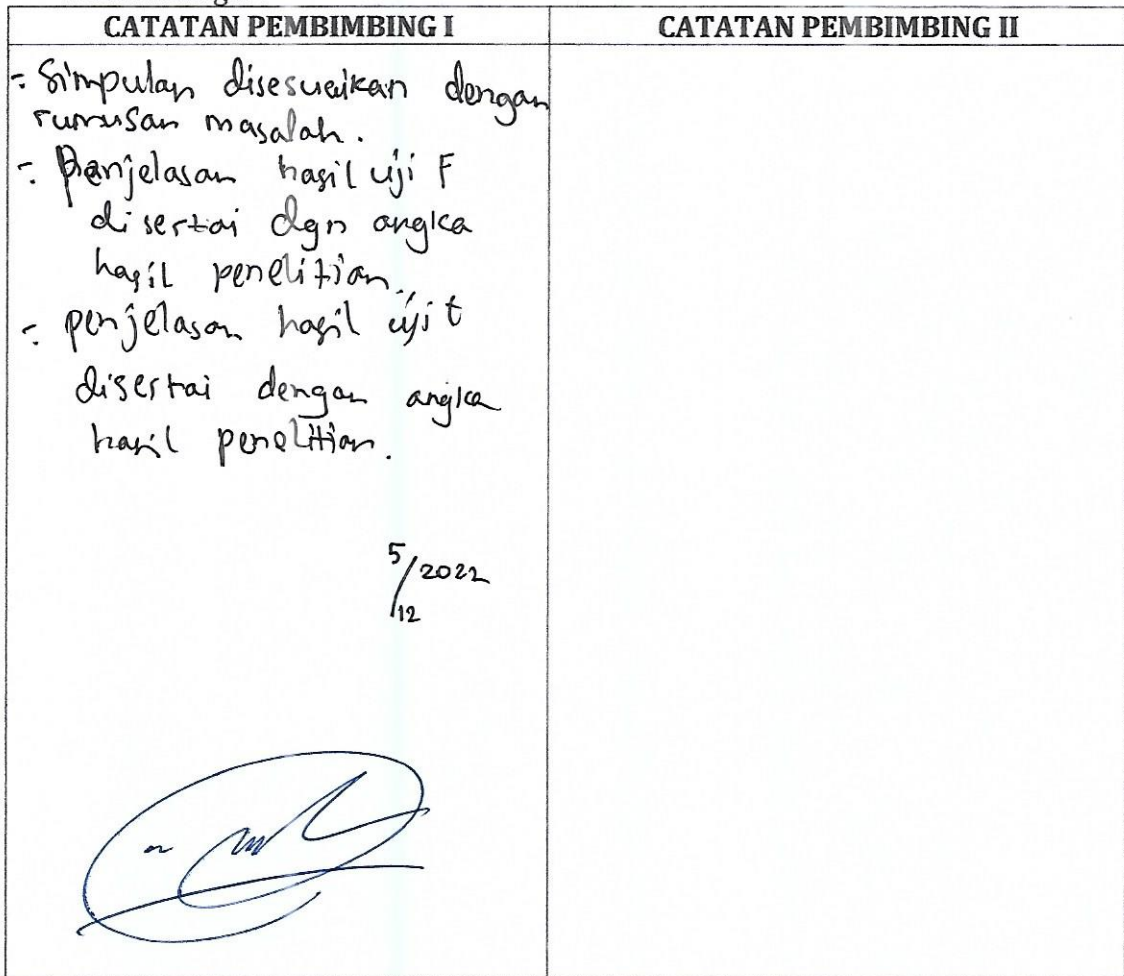 CATATAN PEMBIMBING I
CATATAN PEMBIMBING II
- Simpulan disesuaikan dengan
rumusan masalah.
- Penjelasan hasil uji F
disertai dgn angka
hasil penelitian.
- penjelasan hasil uji t
disertai dengan angka
hasil penelitian.
5/12 2022